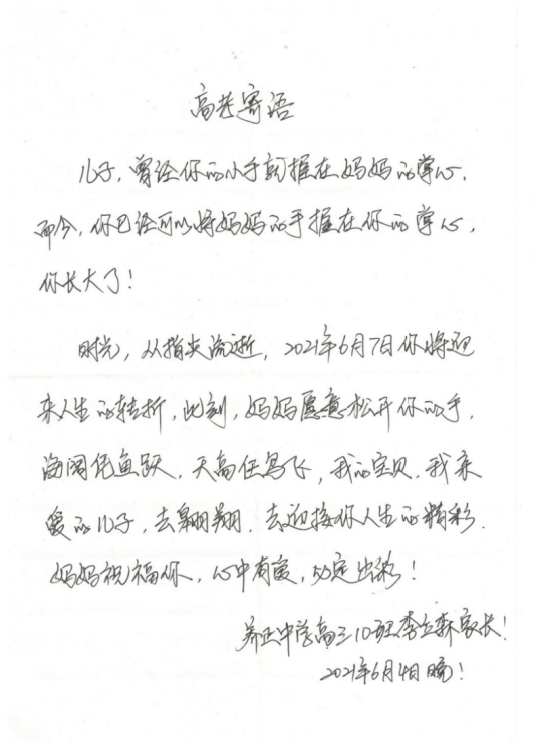 高考寄语
儿子，曾经你的小手就握在妈妈的掌心，
而今，你已经可以将妈妈的手握在你的掌心，
你长大了！
时光，从指尖流逝，2021年6月7日你将迎
来人生的转折，此刻，妈妈愿意松开你的手，
海阔凭鱼跃，天高任鸟飞，我的宝贝，我亲
爱的儿子，去翱翔，去迎接你人生的精彩．
妈妈祝福你，心中有爱，必定出彩！
养正中学高三10班李立森家长！
2021年6月4日晚！